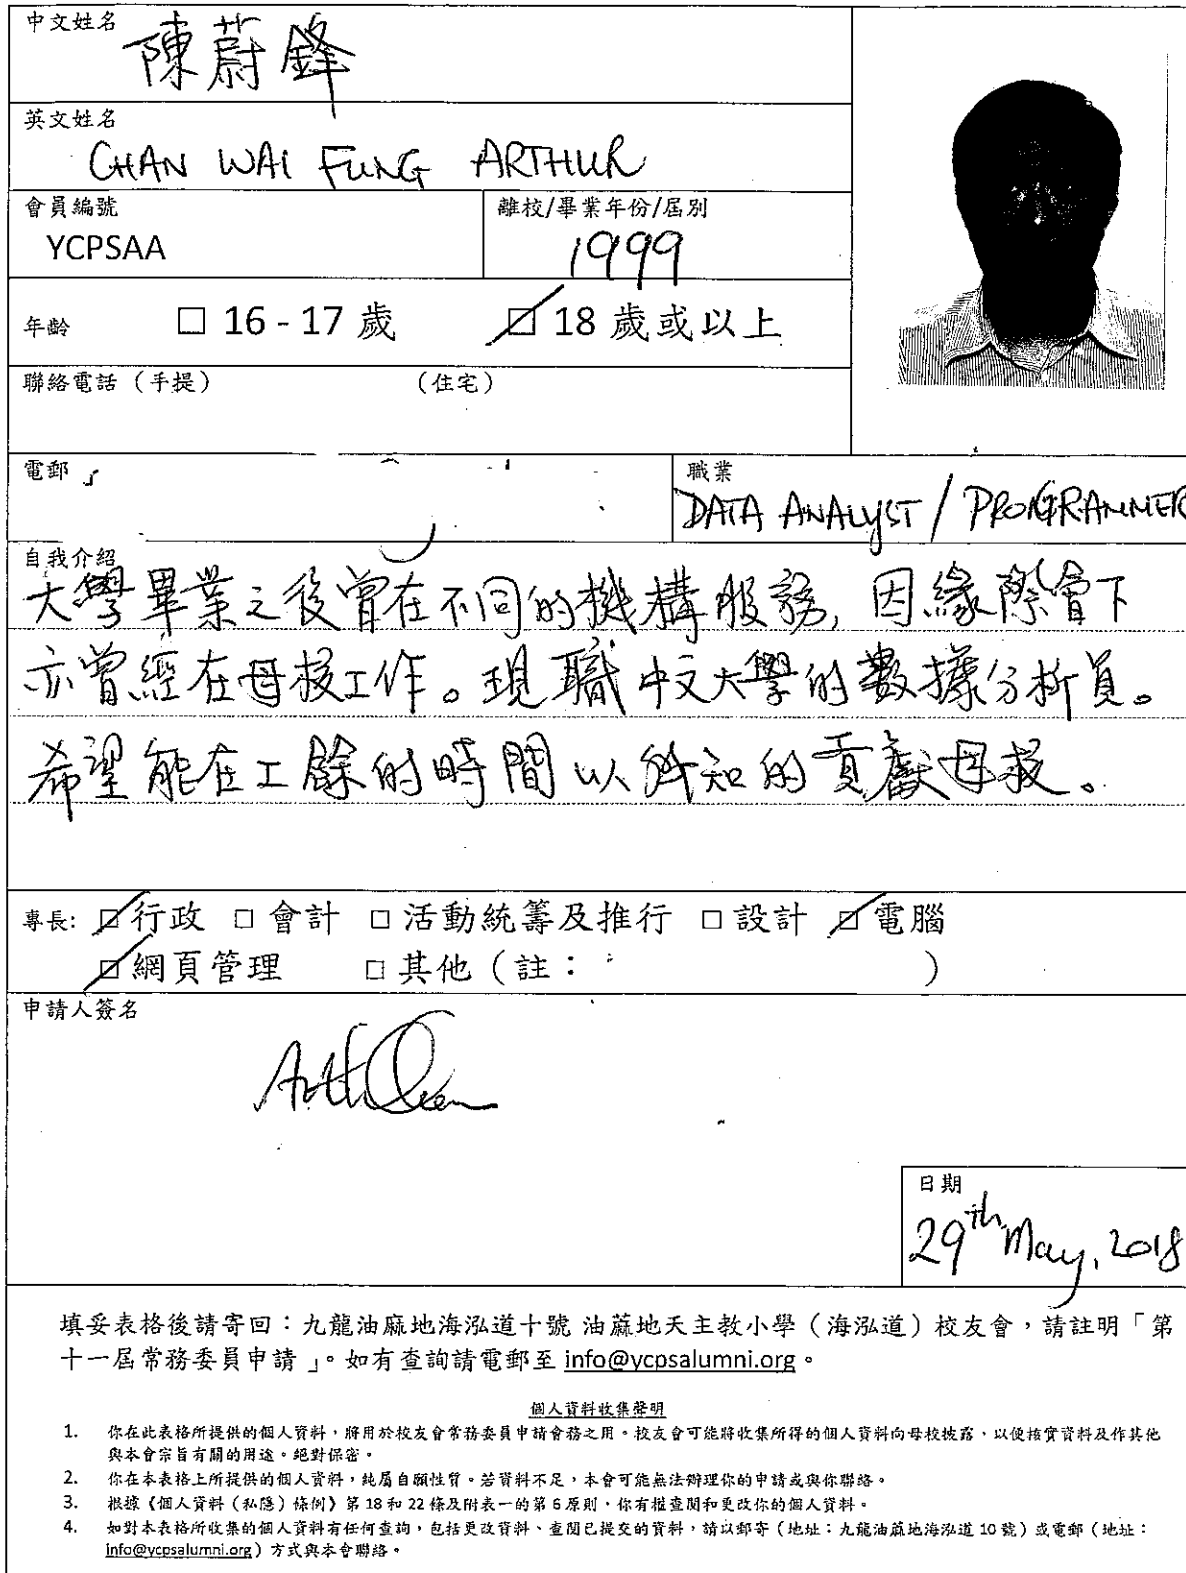 中文姓名
陳蔚鋒
英文姓名
CHAN WAI FUNG ARTHUR
會員編號
YCPSAA
離校/畢業年份/屆別
1999
年齡 □ 16 - 17 歲 □ 18 歲或以上
聯絡電話（手提） （住宅）
電郵
職業
DATA ANALYST / PROGRAMMER
自我介紹
大學畢業之後曾在不同的機構服務, 因緣際會下
亦曾經在母校工作。現職中文大學的數據分析員。
希望能在工餘的時間以所知的貢獻母校。
專長: □行政 □會計 □活動統籌及推行 □設計 □電腦
□網頁管理 □其他（註： ）
申請人簽名
日期
29th May, 2018
填妥表格後請寄回：九龍油麻地海泓道十號 油蔴地天主教小學（海泓道）校友會，請註明「第
十一屆常務委員申請」。如有查詢請電郵至 info@ycpsalumni.org。
個人資料收集聲明
1. 你在此表格所提供的個人資料，將用於校友會常務委員申請會務之用。校友會可能將收集所得的個人資料向母校披露，以便核實資料及作其他
與本會宗旨有關的用途。絕對保密。
2. 你在本表格上所提供的個人資料，純屬自願性質。若資料不足，本會可能無法辦理你的申請或與你聯絡。
3. 根據《個人資料（私隱）條例》第 18 和 22 條及附表一的第 6 原則，你有權查閱和更改你的個人資料。
4. 如對本表格所收集的個人資料有任何查詢，包括更改資料、查閱已提交的資料，請以郵寄（地址：九龍油蔴地海泓道 10 號）或電郵（地址：
info@ycpsalumni.org）方式與本會聯絡。